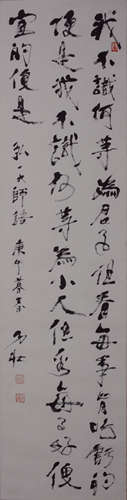 我不識何等為君子但看每事肯吃虧的
便是我不識何等為小人但看每事好便
宜的便是 弘一大師語 庚午暮春